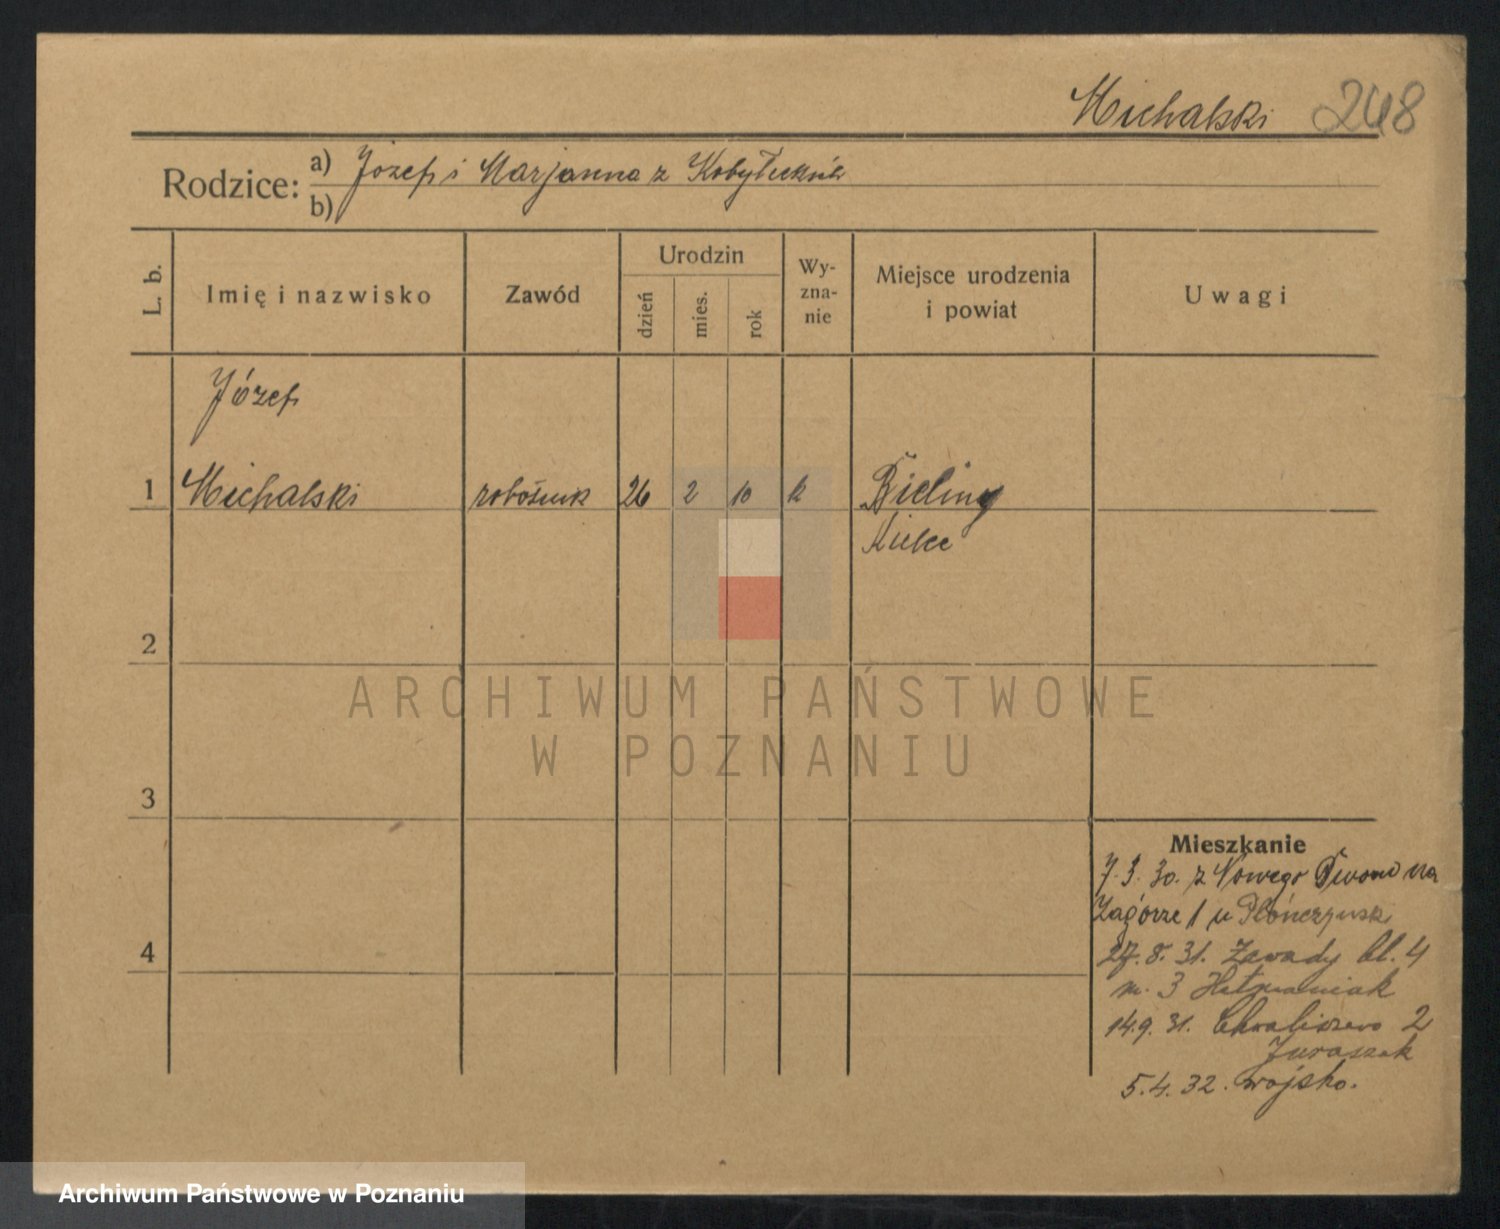 Michalski 248
Rodzice: a) Józef i Marjanna z Kobyłeckich
b)
L. b.
Imię i nazwisko
Zawód
Urodzin
dzień
mies.
rok
Wy-
zna-
nie
Miejsce urodzenia
i powiat
Uwagi
Józef
1 Michalski robotnik 26 2 10 k Bieliny
Kielce
2
ARCHIWUM PAŃSTWOWE
W POZNANIU
3
Mieszkanie
7.3.30. z Nowego na
Zagórze 1 u Płończyński
4
27.8.31. Zawady bl. 4
m. 3 Hetmaniak
14.9.31. Chwaliszewo 2
Juraszek
5.4.32. wojsko.
Archiwum Państwowe w Poznaniu